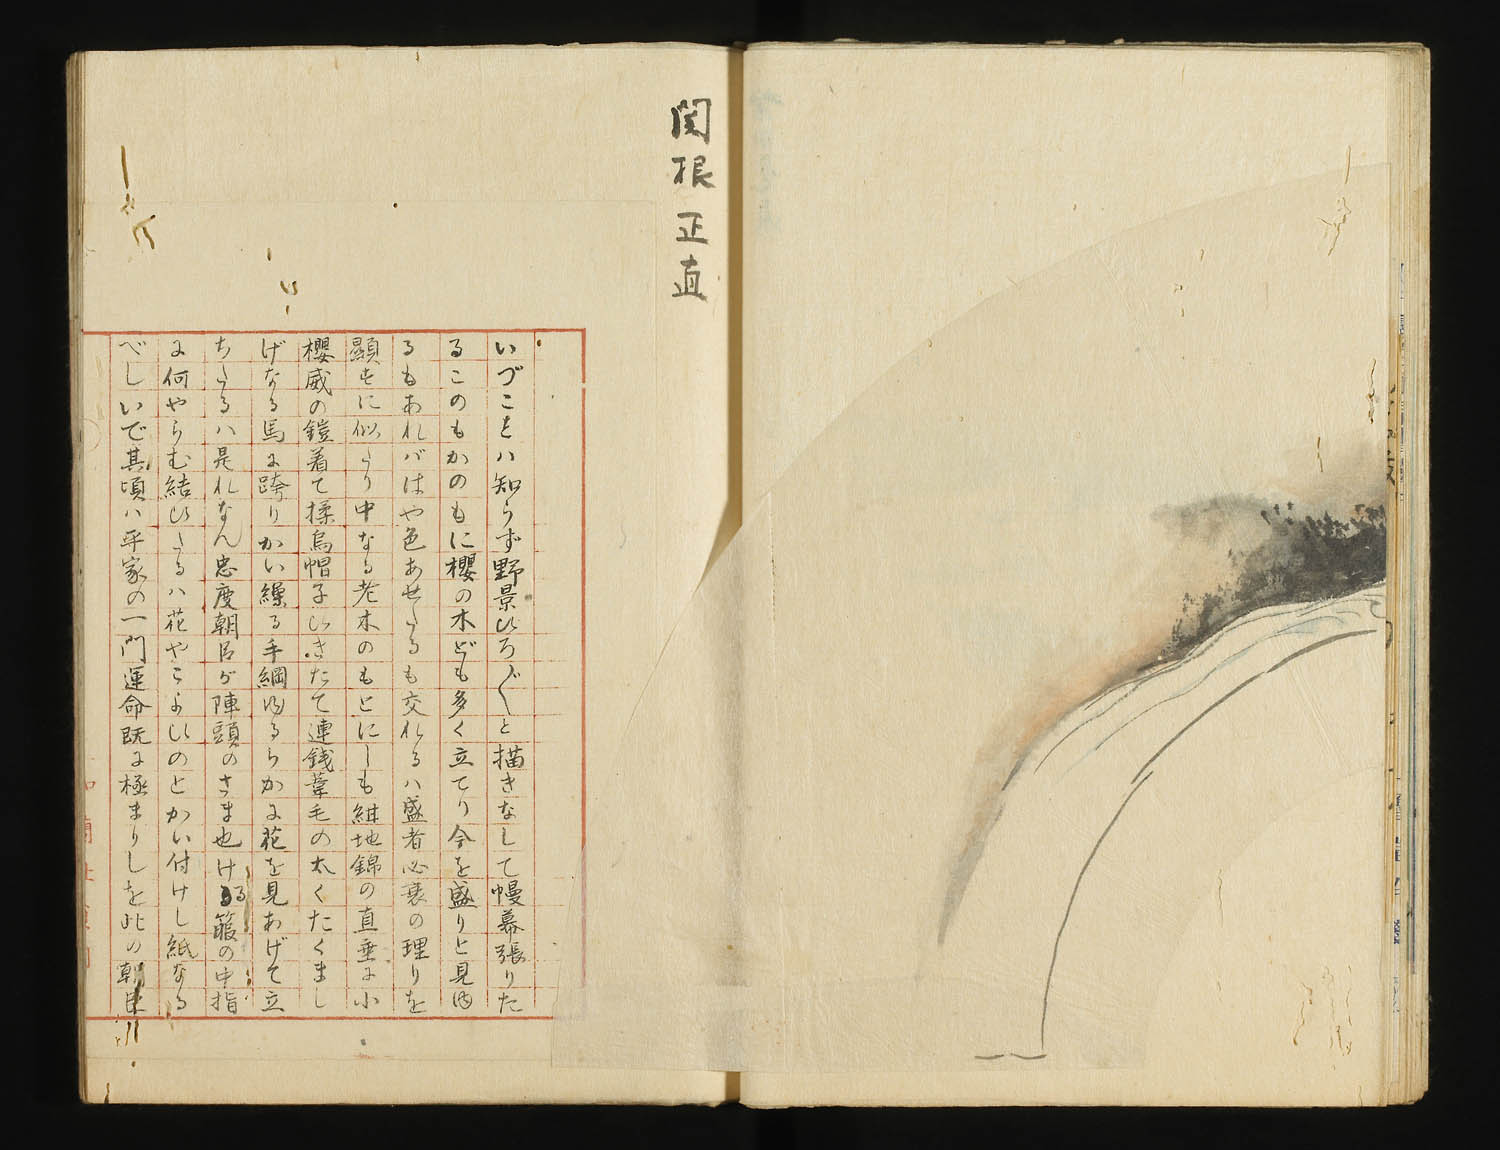 関根正直
いづことハ知らず野景ひろ〴〵と描きなして幔幕張りた
るこのもかのもに櫻の木ども多く立てり今を盛りと見ゆ
るもあれバはや色あせたるも交れるハ盛者必衰の理りを
顕すに似たり中なる老木のもとにしも紺地錦の直垂に小
櫻威の鎧着て揉烏帽子ひきたて連銭葦毛の太くたくまし
げなる馬に跨りかい繰る手綱ゆるらかに花を見あげて立
ちたるハ是れなん忠度朝臣が陣頭のさま也ける箙の中指
に何やらむ結ひたるハ花やこよひのとかい付けし紙なる
べしいで其頃ハ平家の一門運命既に極まりしを此の朝臣